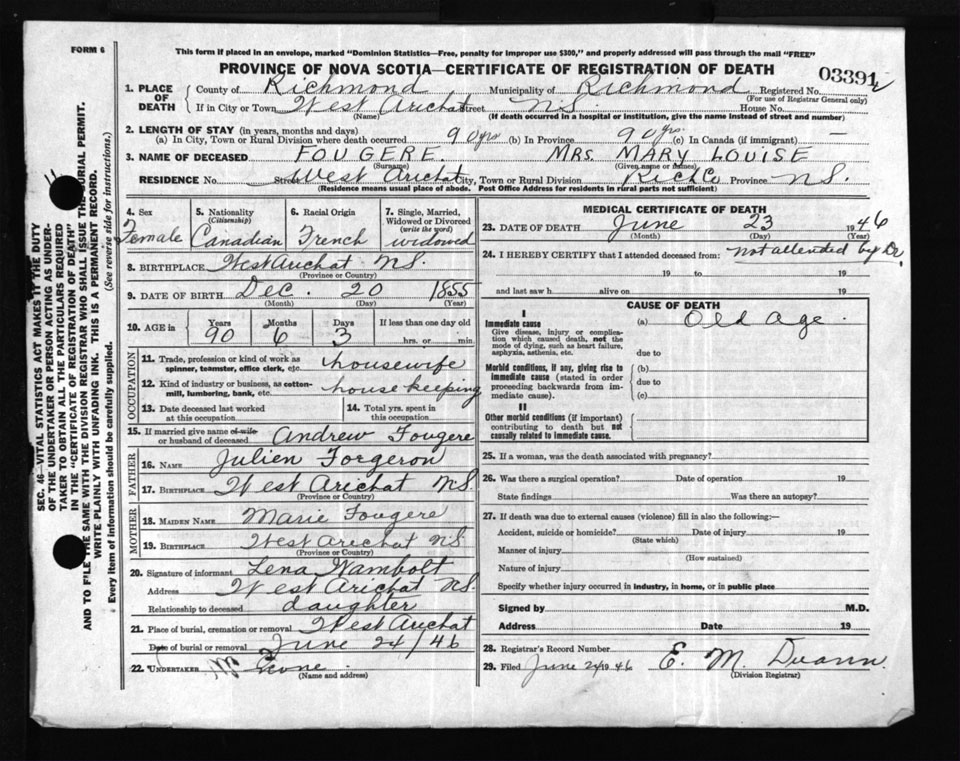 FORM 6
This form if placed in an envelope, marked "Dominion Statistics—Free, penalty for improper use $300," and properly addressed will pass through the mail "FREE"
PROVINCE OF NOVA SCOTIA—CERTIFICATE OF REGISTRATION OF DEATH
03391
1. PLACE OF DEATH
County of Richmond Municipality of Richmond Registered No.
(For use of Registrar General only)
If in City or Town West Arichat Street N.S. House No.
(Name) (If death occurred in a hospital or institution, give the name instead of street and number)
2. LENGTH OF STAY (in years, months and days)
(a) In City, Town or Rural Division where death occurred 90 yrs (b) In Province 90 yrs. (c) In Canada (if immigrant) —
3. NAME OF DECEASED FOUGERE. MRS. MARY LOUISE
(Surname) (Given name or names)
RESIDENCE No. Street West Arichat City, Town or Rural Division Rich Co Province N.S.
(Residence means usual place of abode. Post Office Address for residents in rural parts not sufficient)
4. Sex
Female
5. Nationality
(Citizenship)
Canadian
6. Racial Origin
French
7. Single, Married, Widowed or Divorced
(write the word)
widowed
8. BIRTHPLACE West Arichat N.S.
(Province or Country)
9. DATE OF BIRTH Dec. 20 1855
(Month) (Day) (Year)
10. AGE in Years Months Days If less than one day old
90 6 3 hrs. or min.
OCCUPATION
11. Trade, profession or kind of work as spinner, teamster, office clerk, etc. housewife
12. Kind of industry or business, as cotton-mill, lumbering, bank, etc. house keeping
13. Date deceased last worked at this occupation
14. Total yrs. spent in this occupation
15. If married give name of wife or husband of deceased Andrew Fougere
FATHER
16. NAME Julien Forgeron
17. BIRTHPLACE West Arichat N.S.
(Province or Country)
MOTHER
18. MAIDEN NAME Marie Fougere
19. BIRTHPLACE West Arichat N.S.
(Province or Country)
20. Signature of informant Lena Wambolt
Address West Arichat N.S.
Relationship to deceased daughter
21. Place of burial, cremation or removal West Arichat
Date of burial or removal June 24/46
22. UNDERTAKER
(Name and address)
MEDICAL CERTIFICATE OF DEATH
23. DATE OF DEATH June 23 1946
(Month) (Day) (Year)
24. I HEREBY CERTIFY that I attended deceased from: not attended by Dr.
19 to 19
and last saw h alive on 19
CAUSE OF DEATH
I
Immediate cause
Give disease, injury or complication which caused death, not the mode of dying, such as heart failure, asphyxia, asthenia, etc.
(a) Old age.
due to
Morbid conditions, if any, giving rise to immediate cause (stated in order proceeding backwards from immediate cause).
(b)
due to
(c)
II
Other morbid conditions (if important) contributing to death but not causally related to immediate cause.
25. If a woman, was the death associated with pregnancy?
26. Was there a surgical operation? Date of operation 19
State findings Was there an autopsy?
27. If death was due to external causes (violence) fill in also the following:—
Accident, suicide or homicide? Date of injury 19
(State which)
Manner of injury
(How sustained)
Nature of injury
Specify whether injury occurred in industry, in home, or in public place
Signed by M.D.
Address Date 19
28. Registrar's Record Number
29. Filed June 24 1946 E. M. Doann
(Division Registrar)
SEC. 46—VITAL STATISTICS ACT MAKES IT THE DUTY
OF THE UNDERTAKER OR PERSON ACTING AS UNDER-
TAKER TO OBTAIN ALL THE PARTICULARS REQUIRED
IN THE "CERTIFICATE OF REGISTRATION OF DEATH"
AND TO FILE THE SAME WITH THE DIVISION REGISTRAR WHO SHALL ISSUE THE BURIAL PERMIT.
WRITE PLAINLY WITH UNFADING INK. THIS IS A PERMANENT RECORD.
Every item of information should be carefully supplied. (See reverse side for instructions.)